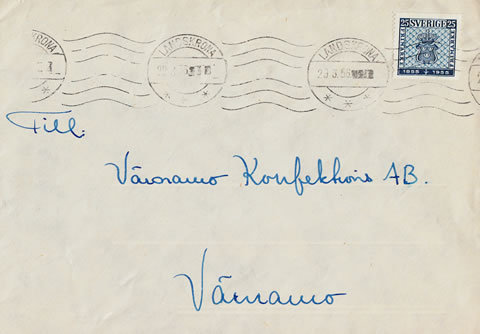 KRONA
LANDSKRONA
LANDSKRONA
25 SVERIGE 25
1855 1955
Till:
Värnamo Konfektions AB.
Värnamo